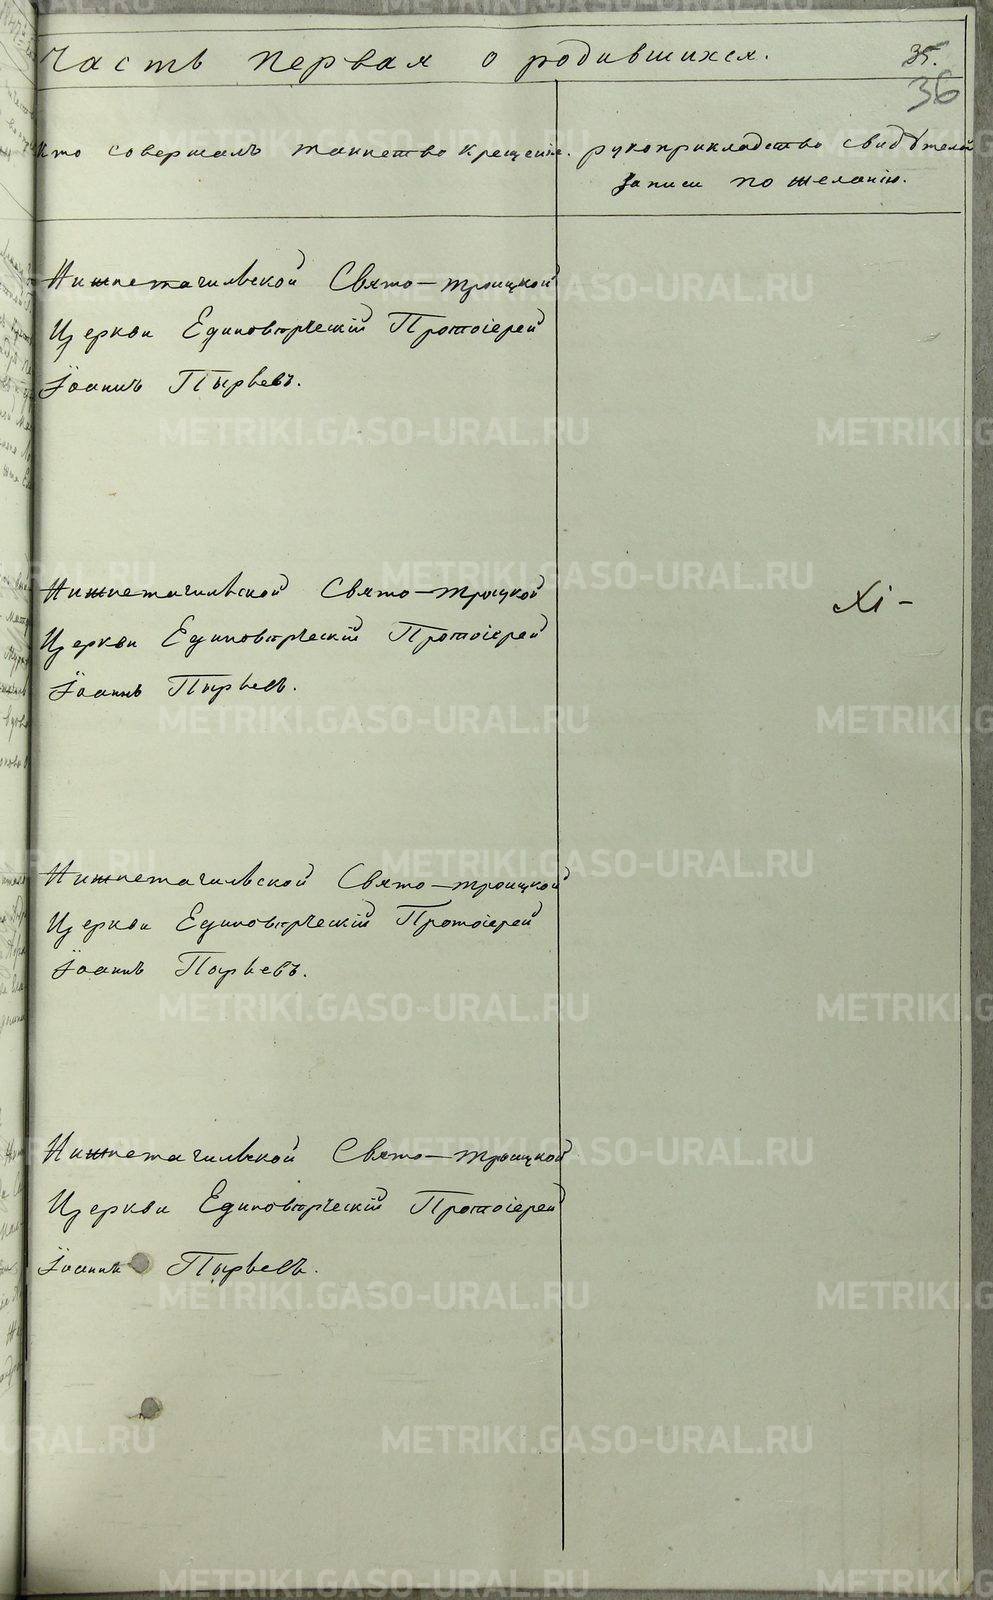 Часть первая о родившихся.
35.
36
Кто совершалъ таинство крещенія.
рукоприкладство свидѣтелей
записи по желанію.
Нижнетагильской Свято-троицкой
Церкви Единовѣрческій Протоіерей
Іоаннъ Пырьевъ.
Нижнетагильской Свято-троицкой
Церкви Единовѣрческій Протоіерей
Іоаннъ Пырьевъ.
XI-
Нижнетагильской Свято-троицкой
Церкви Единовѣрческій Протоіерей
Іоаннъ Пырьевъ.
Нижнетагильской Свято-троицкой
Церкви Единовѣрческій Протоіерей
Іоаннъ Пырьевъ.
METRIKI.GASO-URAL.RU